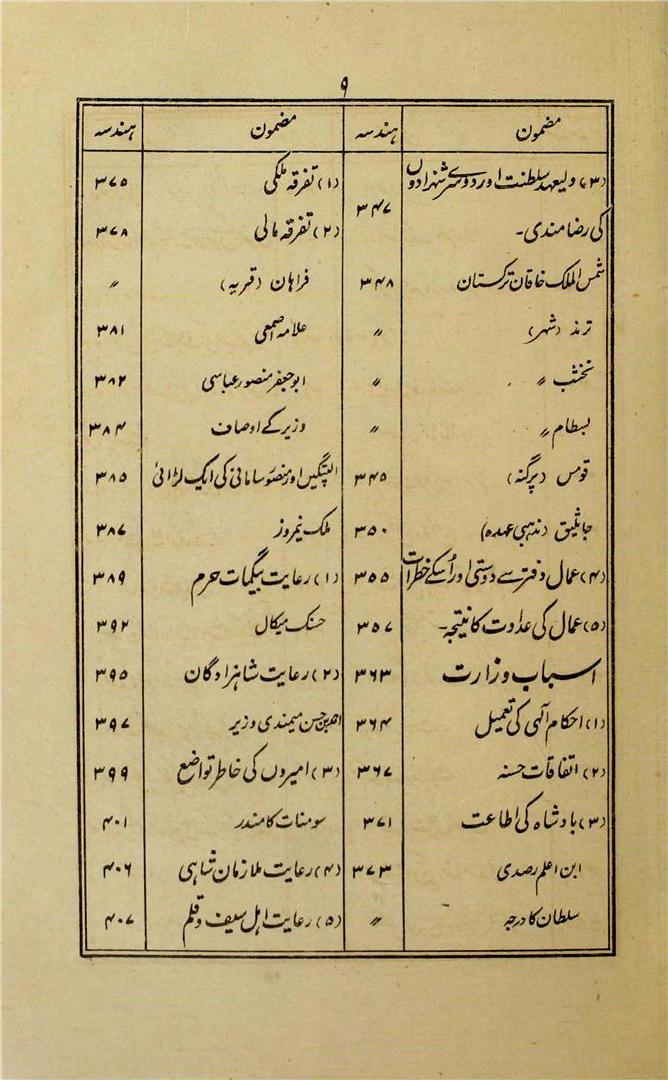 ۹
مضمون ہندسہ مضمون ہندسہ
(۳) ولیعہد سلطنت اور دوسرے شہزادوں ۳۴۷ (۱) تفرقہ ملکی ۳۷۵
کی رضامندی۔ (۲) تفرقہ مالی ۳۷۸
شمس الملک خاقان ترکستان ۳۴۸ فراہان (قریہ) 〃
ترمذ (شہر) 〃 علامہ اصمعی ۳۸۱
نخشب 〃 〃 ابوجعفر منصور عباسی ۳۸۲
بسطام 〃 〃 وزیر کے اوصاف ۳۸۴
قومس (پرگنہ) ۳۴۵ الپتگین اور منصور سامانی کی ایک لڑائی ۳۸۵
جاثلیق (مذہبی عہدہ) ۳۵۰ ملک نیمروز ۳۸۷
(۴) عمال دفتر سے دوستی اور اُسکے خطرات ۳۵۵ (۱) رعایت بیگمات حرم ۳۸۹
(۵) عمال کی عداوت کا نتیجہ۔ ۳۵۷ حسنک میکال ۳۹۲
اسباب وزارت ۳۶۳ (۲) رعایت شاہزادگان ۳۹۵
(۱) احکام آلہی کی تعمیل ۳۶۴ احمد بن حسن میمندی وزیر ۳۹۷
(۲) اتفاقات حسنہ ۳۶۷ (۳) امیروں کی خاطر تواضع ۳۹۹
(۳) بادشاہ کی اطاعت ۳۷۱ سومنات کا مندر ۴۰۱
ابن اعلم رصدی ۳۷۳ (۴) رعایت ملازمان شاہی ۴۰۶
سلطان کا درجہ 〃 (۵) رعایت اہل سیف و قلم ۴۰۷